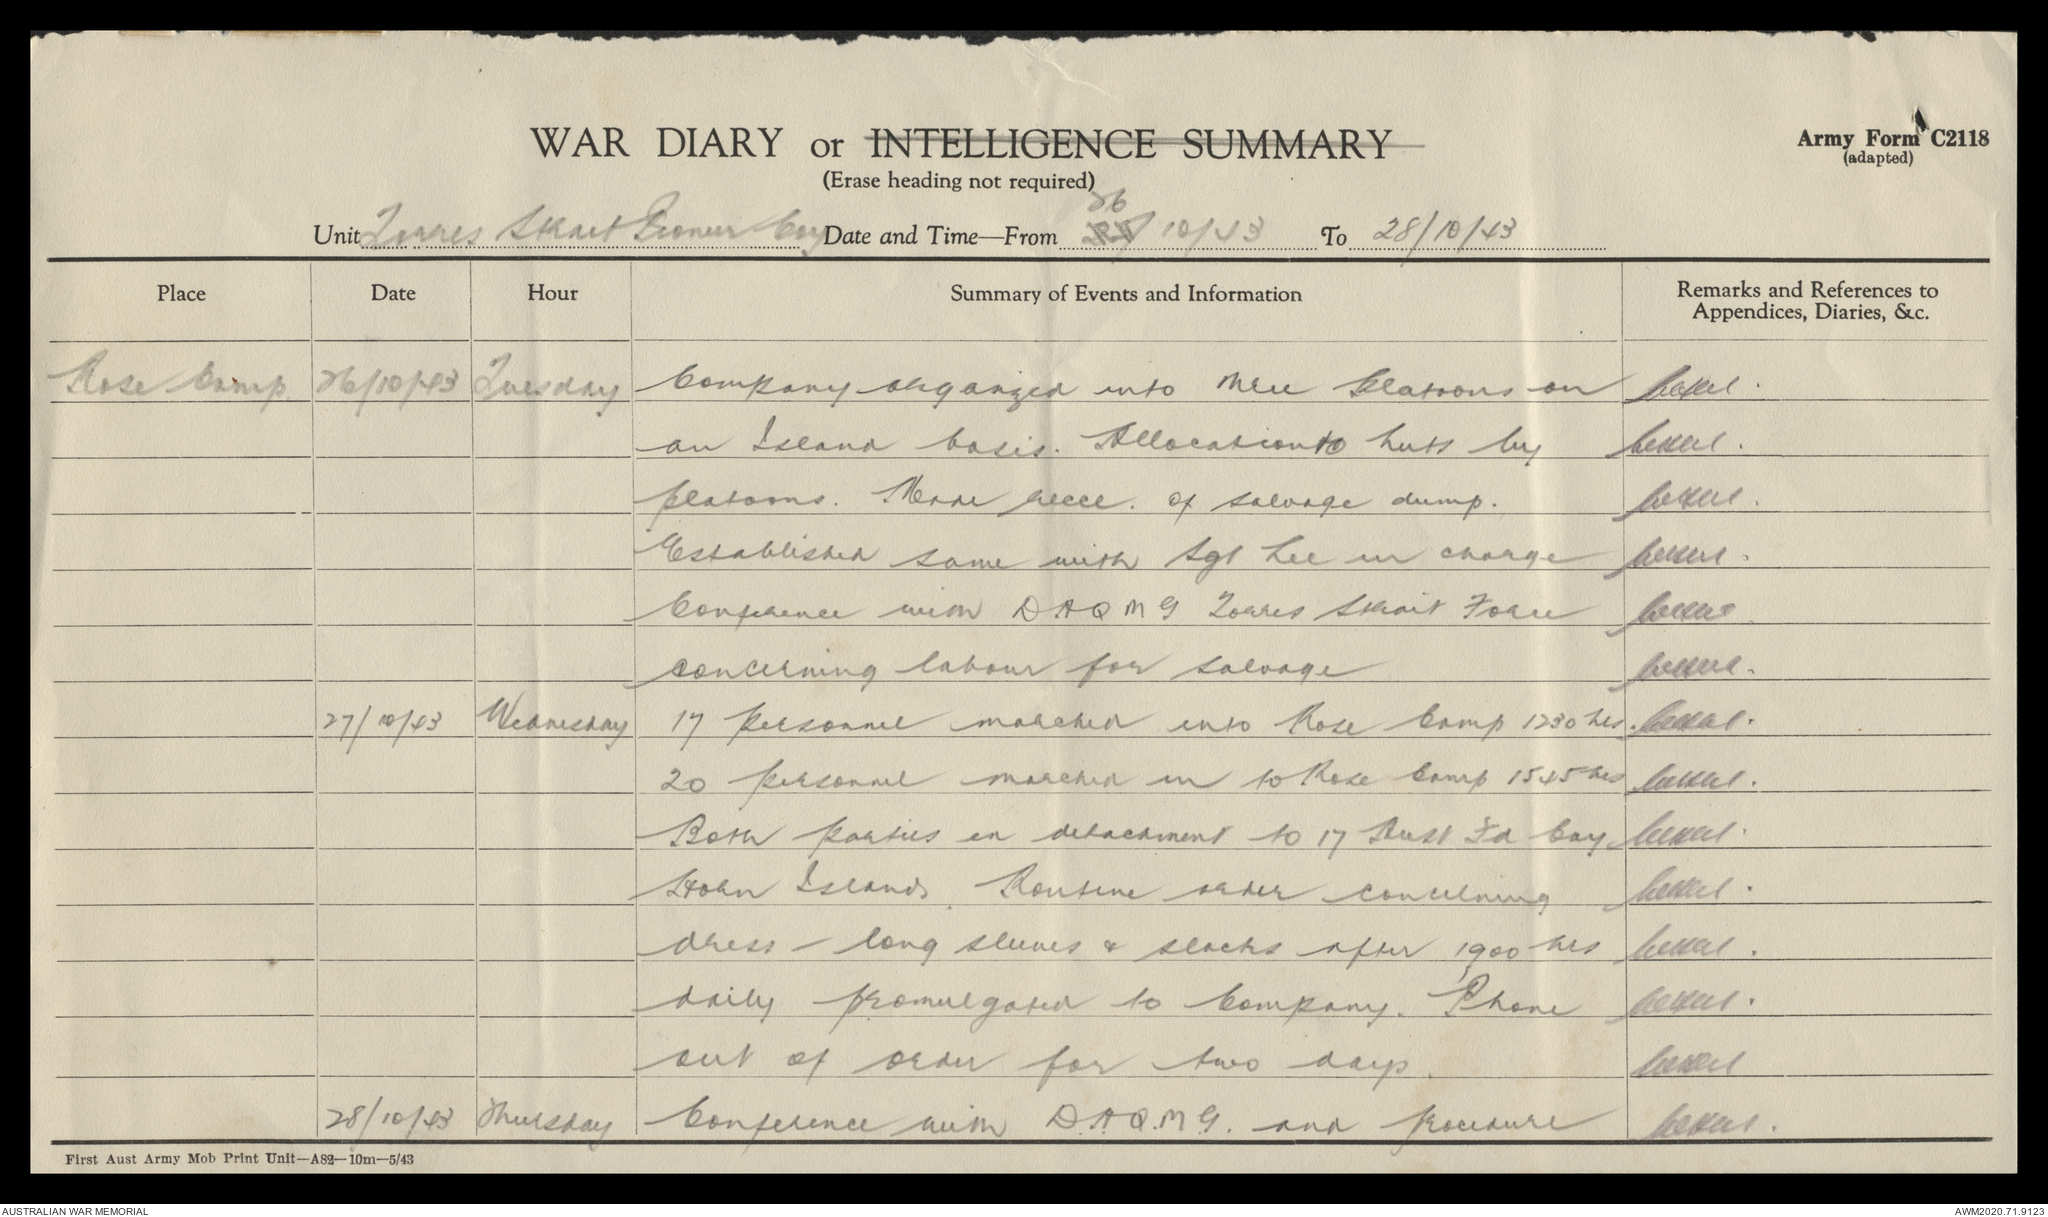 WAR DIARY or INTELLIGENCE SUMMARY
(Erase heading not required)
Army Form C2118
(adapted)
Unit Torres Strait Pioneer Coy Date and Time—From 26/10/43 To 28/10/43
Place Date Hour Summary of Events and Information Remarks and References to
Appendices, Diaries, &c.
Rose Camp 26/10/43 Tuesday Company organized into three platoons on
an Island basis. Allocation to huts by
platoons. Made recce. of salvage dump.
Established same with Sgt Lee in charge
Conference with DAQMG Torres Strait Force
concerning labour for salvage
27/10/43 Wednesday 17 personnel marched into Rose Camp 1230 hrs.
20 personnel marched in to Rose Camp 1545 hrs
Both parties on detachment to 17 Aust Fd Coy
Horn Island. Routine order concerning
dress – long sleeves & slacks after 1900 hrs
daily promulgated to Company. Phone
out of order for two days.
28/10/43 Thursday Conference with D.A.Q.M.G. and procedure
First Aust Army Mob Print Unit—A82—10m—5/43
AUSTRALIAN WAR MEMORIAL AWM2020.71.9123